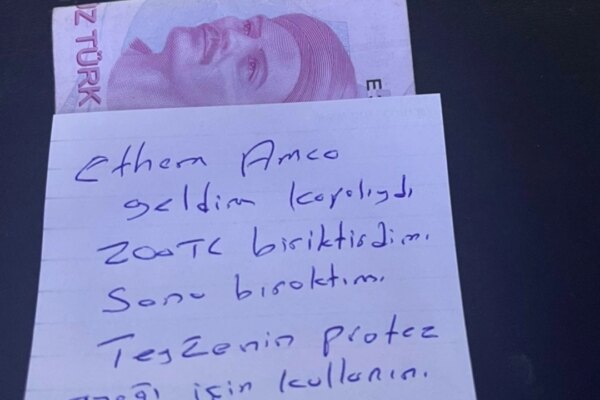 OZ TÜRK
E
Ethem Amca
geldim kapalıydı
200TL biriktirdim.
Sana bıraktım.
Teyzenin protez
için kullanın.